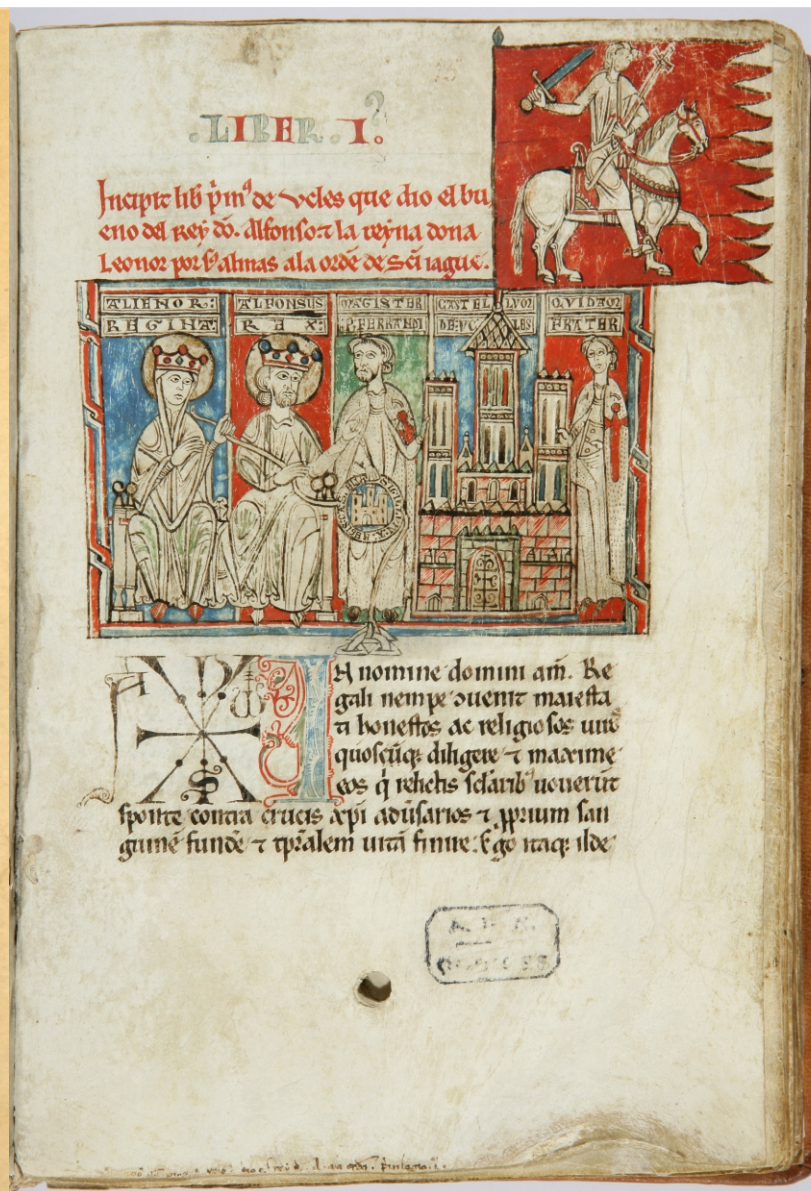 .LIBER.I.
Incipit lib p̄mꝰ de Veles que dio el bu
eno del Rey dō. Alfonso ⁊ la reyna dona
Leonor por sꝰ almas ala ordē de Sc̄i iague.
ALIENOR: ALFONSUS MAGISTER CASTELLVM QVIDAM
REGINA: REX: P. FERRANDI DE VCLES FRATER
IN nomine domini am̄. Re
gali nempe ꝯuenit maiesta
ti honestos ac religiosos uiro
quoscūqꝫ diligere ⁊ maxime
eos q̇ relictis sclarib’ uouerūt
sponte contra crucis xp̄i adūsarios ⁊ ꝓprium san
guinē fundē ⁊ tpralem uitā finire. Ego itaqꝫ ilde